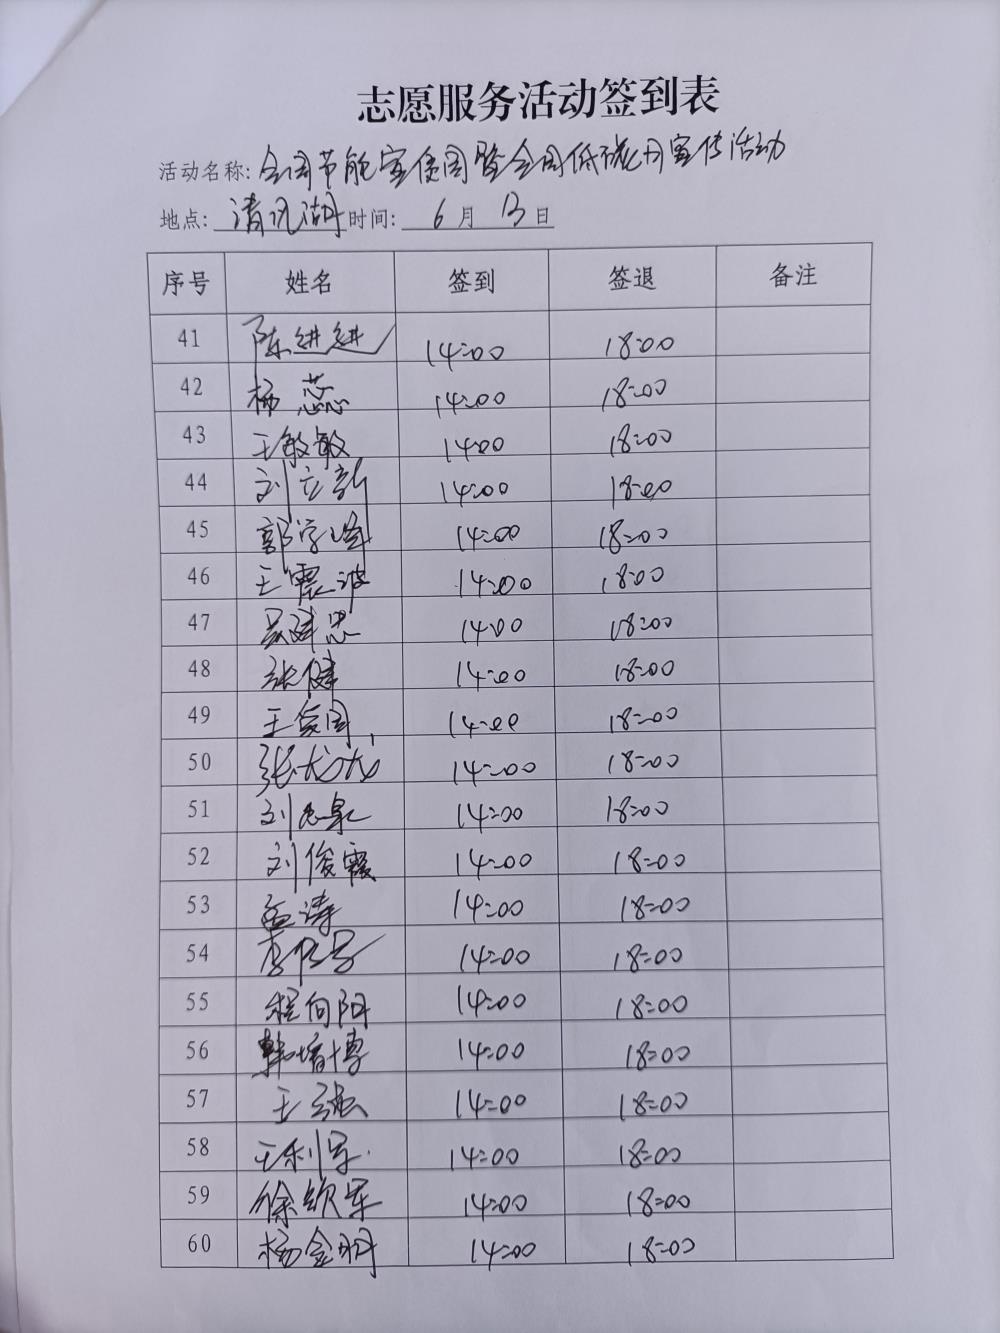 志愿服务活动签到表
活动名称: 全国节能宣传周暨全国低碳日宣传活动
地点: 清风湖 时间: 6 月 13 日
序号 姓名 签到 签退 备注
41 陈进进 14:00 18:00
42 杨蕊 14:00 18:00
43 王敏敏 14:00 18:00
44 刘立新 14:00 18:00
45 郭学峰 14:00 18:00
46 王震波 14:00 18:00
47 吴建忠 14:00 18:00
48 张健 14:00 18:00
49 王 14:00 18:00
50 张龙龙 14:00 18:00
51 刘志泉 14:00 18:00
52 刘俊霞 14:00 18:00
53 孟涛 14:00 18:00
54 李 14:00 18:00
55 程向阳 14:00 18:00
56 韩培博 14:00 18:00
57 王强 14:00 18:00
58 王利军 14:00 18:00
59 徐钦军 14:00 18:00
60 杨金明 14:00 18:00